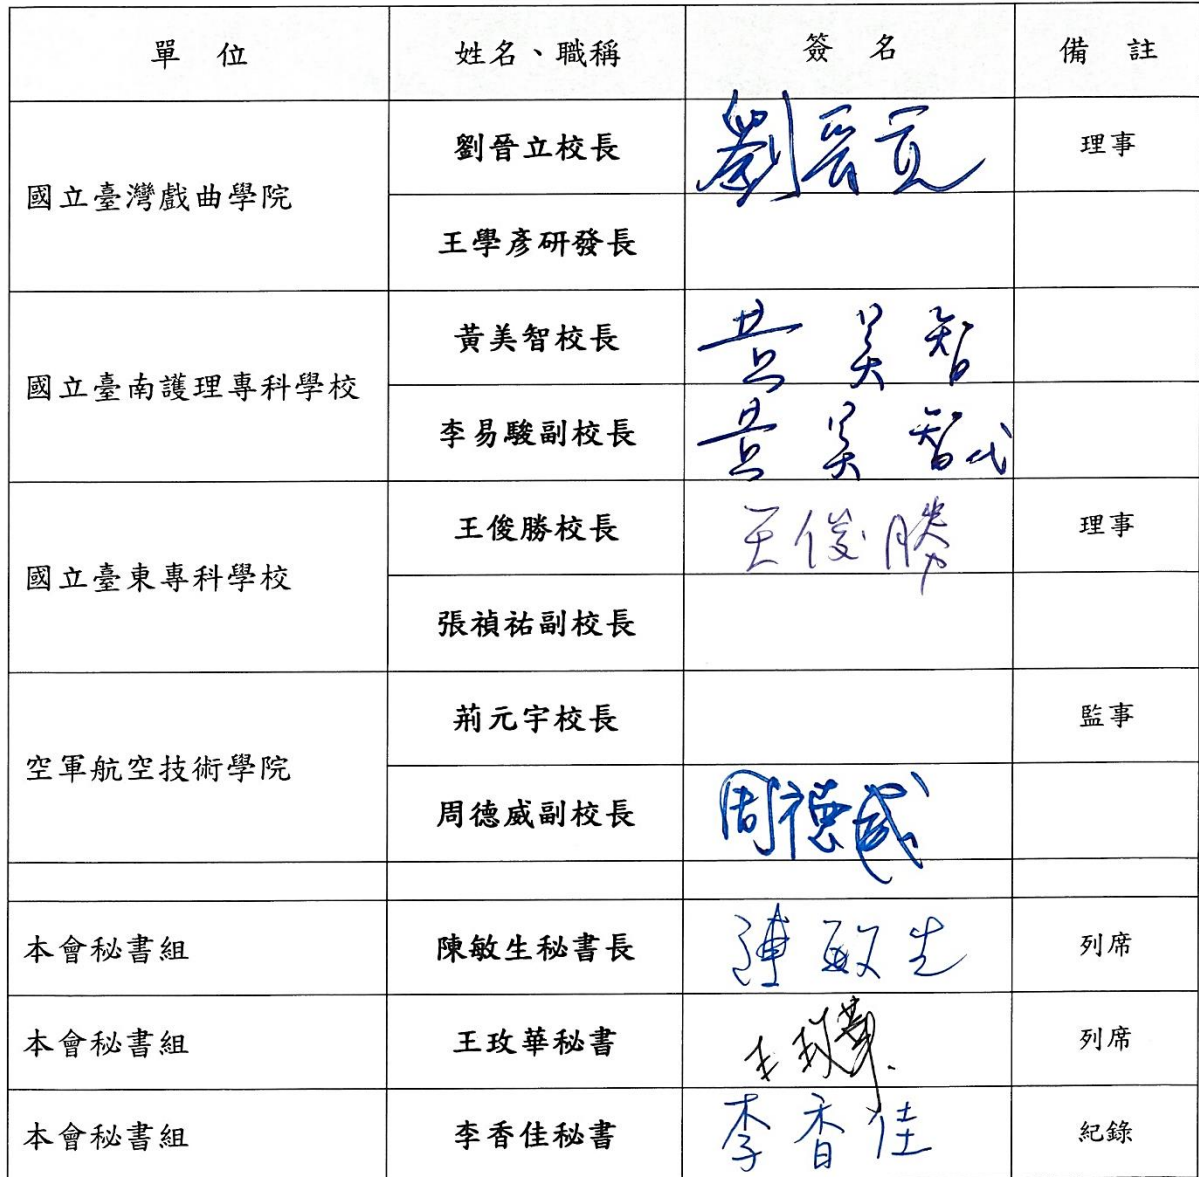 單 位 姓名、職稱 簽 名 備 註
國立臺灣戲曲學院 劉晉立校長 劉晉立 理事
王學彥研發長
國立臺南護理專科學校 黃美智校長 黃美智
李易駿副校長 黃美智代
國立臺東專科學校 王俊勝校長 王俊勝 理事
張禎祐副校長
空軍航空技術學院 荊元宇校長 監事
周德威副校長 周德威
本會秘書組 陳敏生秘書長 陳敏生 列席
本會秘書組 王玫華秘書 王玫華 列席
本會秘書組 李香佳秘書 李香佳 紀錄